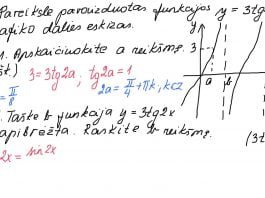 Pareiksle paroixduotas funkcijos y = 3tg
afiko dalies eskizas.
1. Apskaičiuokite a reikšmę.
št.) 3 = 3tg2a; tg2a = 1
= π/8 2a = π/4 + πk, k∈Z
3
y
a
b
Taške b funkcija y = 3tg2x
apibrėžta. Raskite b reikšmę.
(3t
2x = sin2x